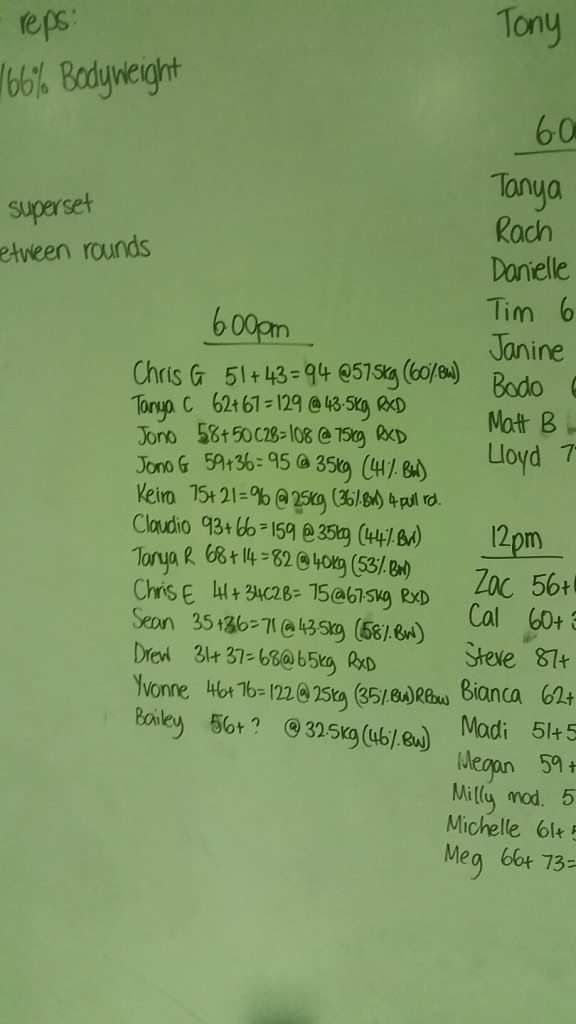 reps:
/66% Bodyweight
superset
etween rounds
6:00pm
Chris G 51+43=94 @57.5kg (60%BW)
Tanya C 62+67=129 @43.5kg RXD
Jono 58+50C2B=108 @75kg RXD
Jono G 59+36=95 @35kg (41%BW)
Keira 75+21=96 @25kg (36%BW) 4 pull rd.
Claudio 93+66=159 @35kg (44%BW)
Tanya R 68+14=82 @40kg (53%BW)
Chris E 41+34C2B=75@67.5kg RXD
Sean 35+36=71@43.5kg (58%BW)
Drew 31+37=68@65kg RXD
Yvonne 46+76=122@25kg (35%BW)RRow
Bailey 56+? @32.5kg (46%BW)
Tony
6:0
Tanya
Rach
Danielle
Tim 6
Janine
Bodo
Matt B
Lloyd 7
12pm
Zac 56+
Cal 60+3
Steve 87+
Bianca 62+
Madi 51+5
Megan 59+
Milly mod. 5
Michelle 61+5
Meg 66+73=